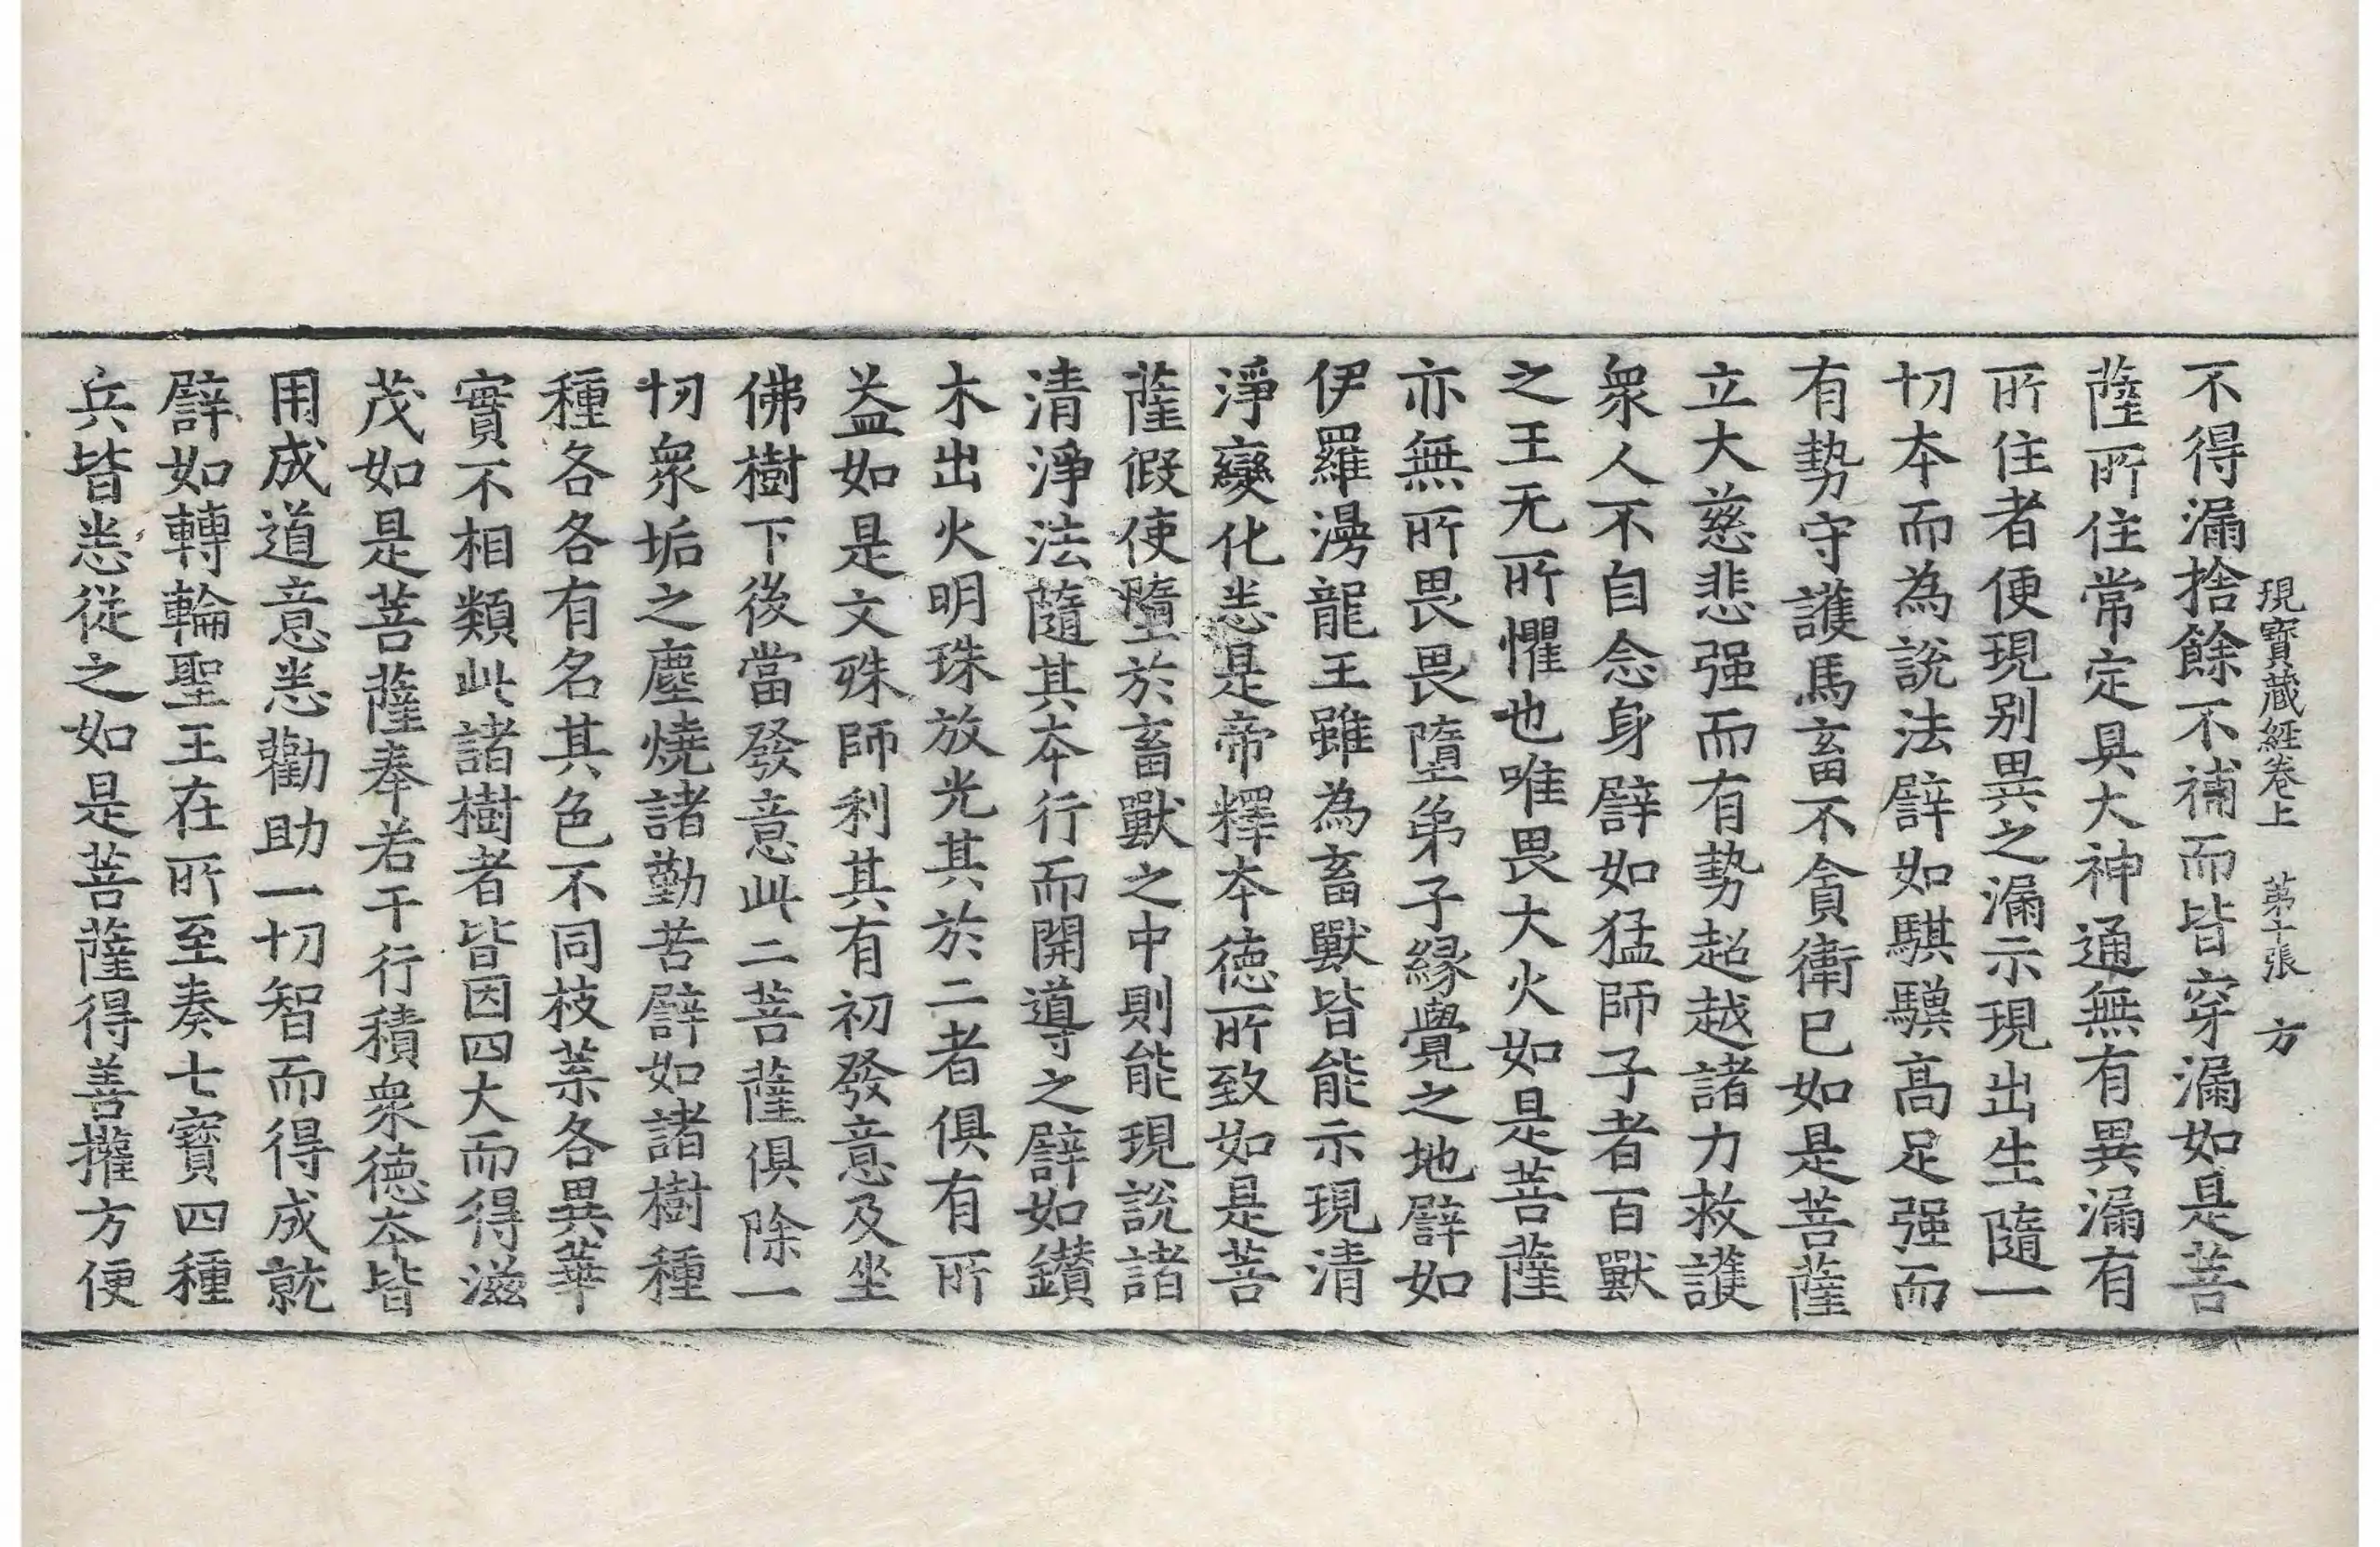 現寶蔵經卷上　第十張　方
不得漏捨餘不補而皆穿漏如是菩
薩所住常定具大神通無有異漏有
所住者便現別異之漏示現出生隨一
切本而為說法譬如騏驥高足强而
有勢守護馬畜不貪衛已如是菩薩
立大慈悲强而有勢超越諸力救護
衆人不自念身譬如猛師子者百獸
之王无所懼也唯畏大火如是菩薩
亦無所畏畏墮弟子緣覺之地譬如
伊羅漫龍王雖為畜獸皆能示現清
淨變化悉是帝釋本德所致如是菩
薩假使墮於畜獸之中則能現說諸
清淨法隨其本行而開導之譬如鑚
木出火明珠放光其於二者俱有所
益如是文殊師利其有初發意及坐
佛樹下後當發意此二菩薩俱除一
切衆垢之塵燒諸勤苦譬如諸樹種
種各各有名其色不同枝葉各異華
實不相類此諸樹者皆因四大而得滋
茂如是菩薩奉若干行積衆德本皆
用成道意悉勸助一切智而得成就
譬如轉輪聖王在所至奏七寶四種
兵皆悉從之如是菩薩得善攉方便